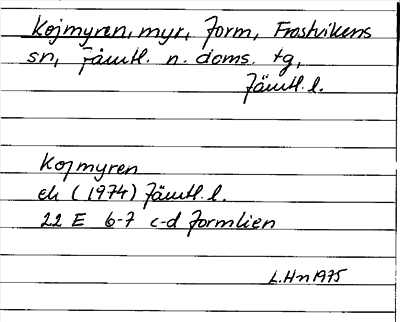 Kojmyren, myr, Jorm, Frostvikens
sn, Jämtl. n. doms. tg,
Jämtl. l.
Kojmyren
ek (1974) Jämtl. l.
22 E 6-7 c-d Jormlien
L.Hn 1975